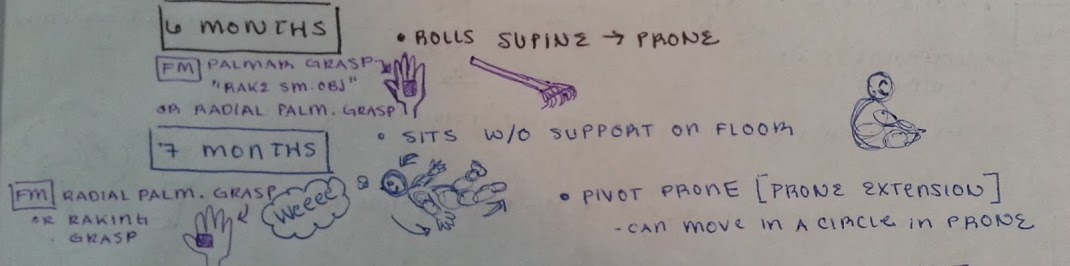 6 MONTHS
• ROLLS SUPINE → PRONE
FM PALMAR GRASP
"RAKE SM. OBJ"
OR RADIAL PALM. GRASP
• SITS W/O SUPPORT ON FLOOR
7 MONTHS
FM RADIAL PALM. GRASP
OR RAKING
GRASP
Weeee
• PIVOT PRONE [PRONE EXTENSION]
- CAN MOVE IN A CIRCLE IN PRONE